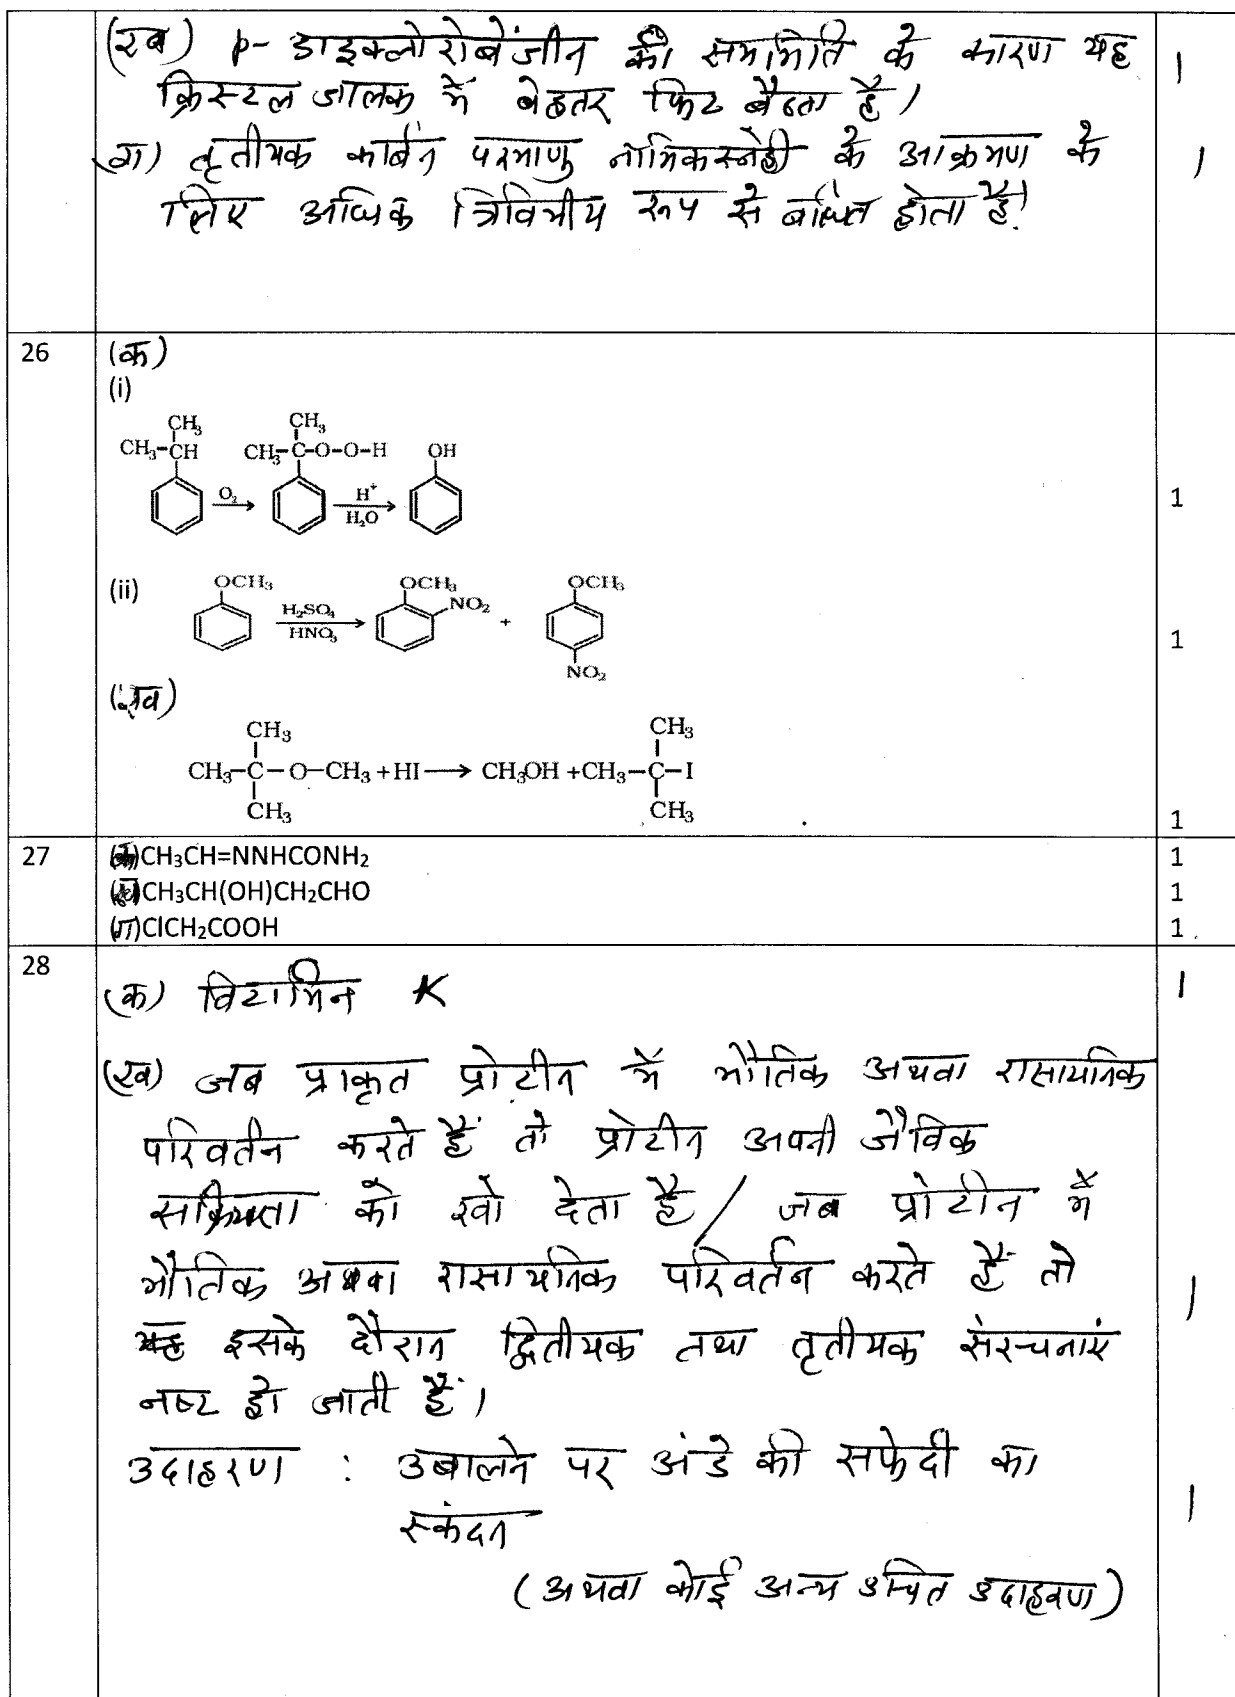 (ख) p- डाइक्लोरोबेंजीन की सममिति के कारण यह 1
क्रिस्टल जालक में बेहतर फिट बैठता है।
ग) तृतीयक कार्बन परमाणु नाभिकस्नेही के आक्रमण के 1
लिए अधिक त्रिविमीय रूप से बाधित होता है।
26 (क)
(i)
CH₃ CH₃
CH₃-CH CH₃-C-O-O-H OH
O₂ H⁺ 1
H₂O
(ii) OCH₃ OCH₃ OCH₃
H₂SO₄ NO₂ +
HNO₃ 1
NO₂
(ख)
CH₃ CH₃
CH₃-C-O-CH₃ + HI ⟶ CH₃OH + CH₃-C-I
CH₃ CH₃ 1
27 (क) CH₃CH=NNHCONH₂ 1
(ख) CH₃CH(OH)CH₂CHO 1
(ग) ClCH₂COOH 1
28 (क) विटामिन K 1
(ख) जब प्राकृत प्रोटीन में भौतिक अथवा रासायनिक
परिवर्तन करते हैं तो प्रोटीन अपनी जैविक
सक्रियता को खो देता है / जब प्रोटीन में
भौतिक अथवा रासायनिक परिवर्तन करते हैं तो 1
इसके दौरान द्वितीयक तथा तृतीयक संरचनाएं
नष्ट हो जाती हैं।
उदाहरण : उबालने पर अंडे की सफेदी का
स्कंदन 1
(अथवा कोई अन्य उचित उदाहरण)